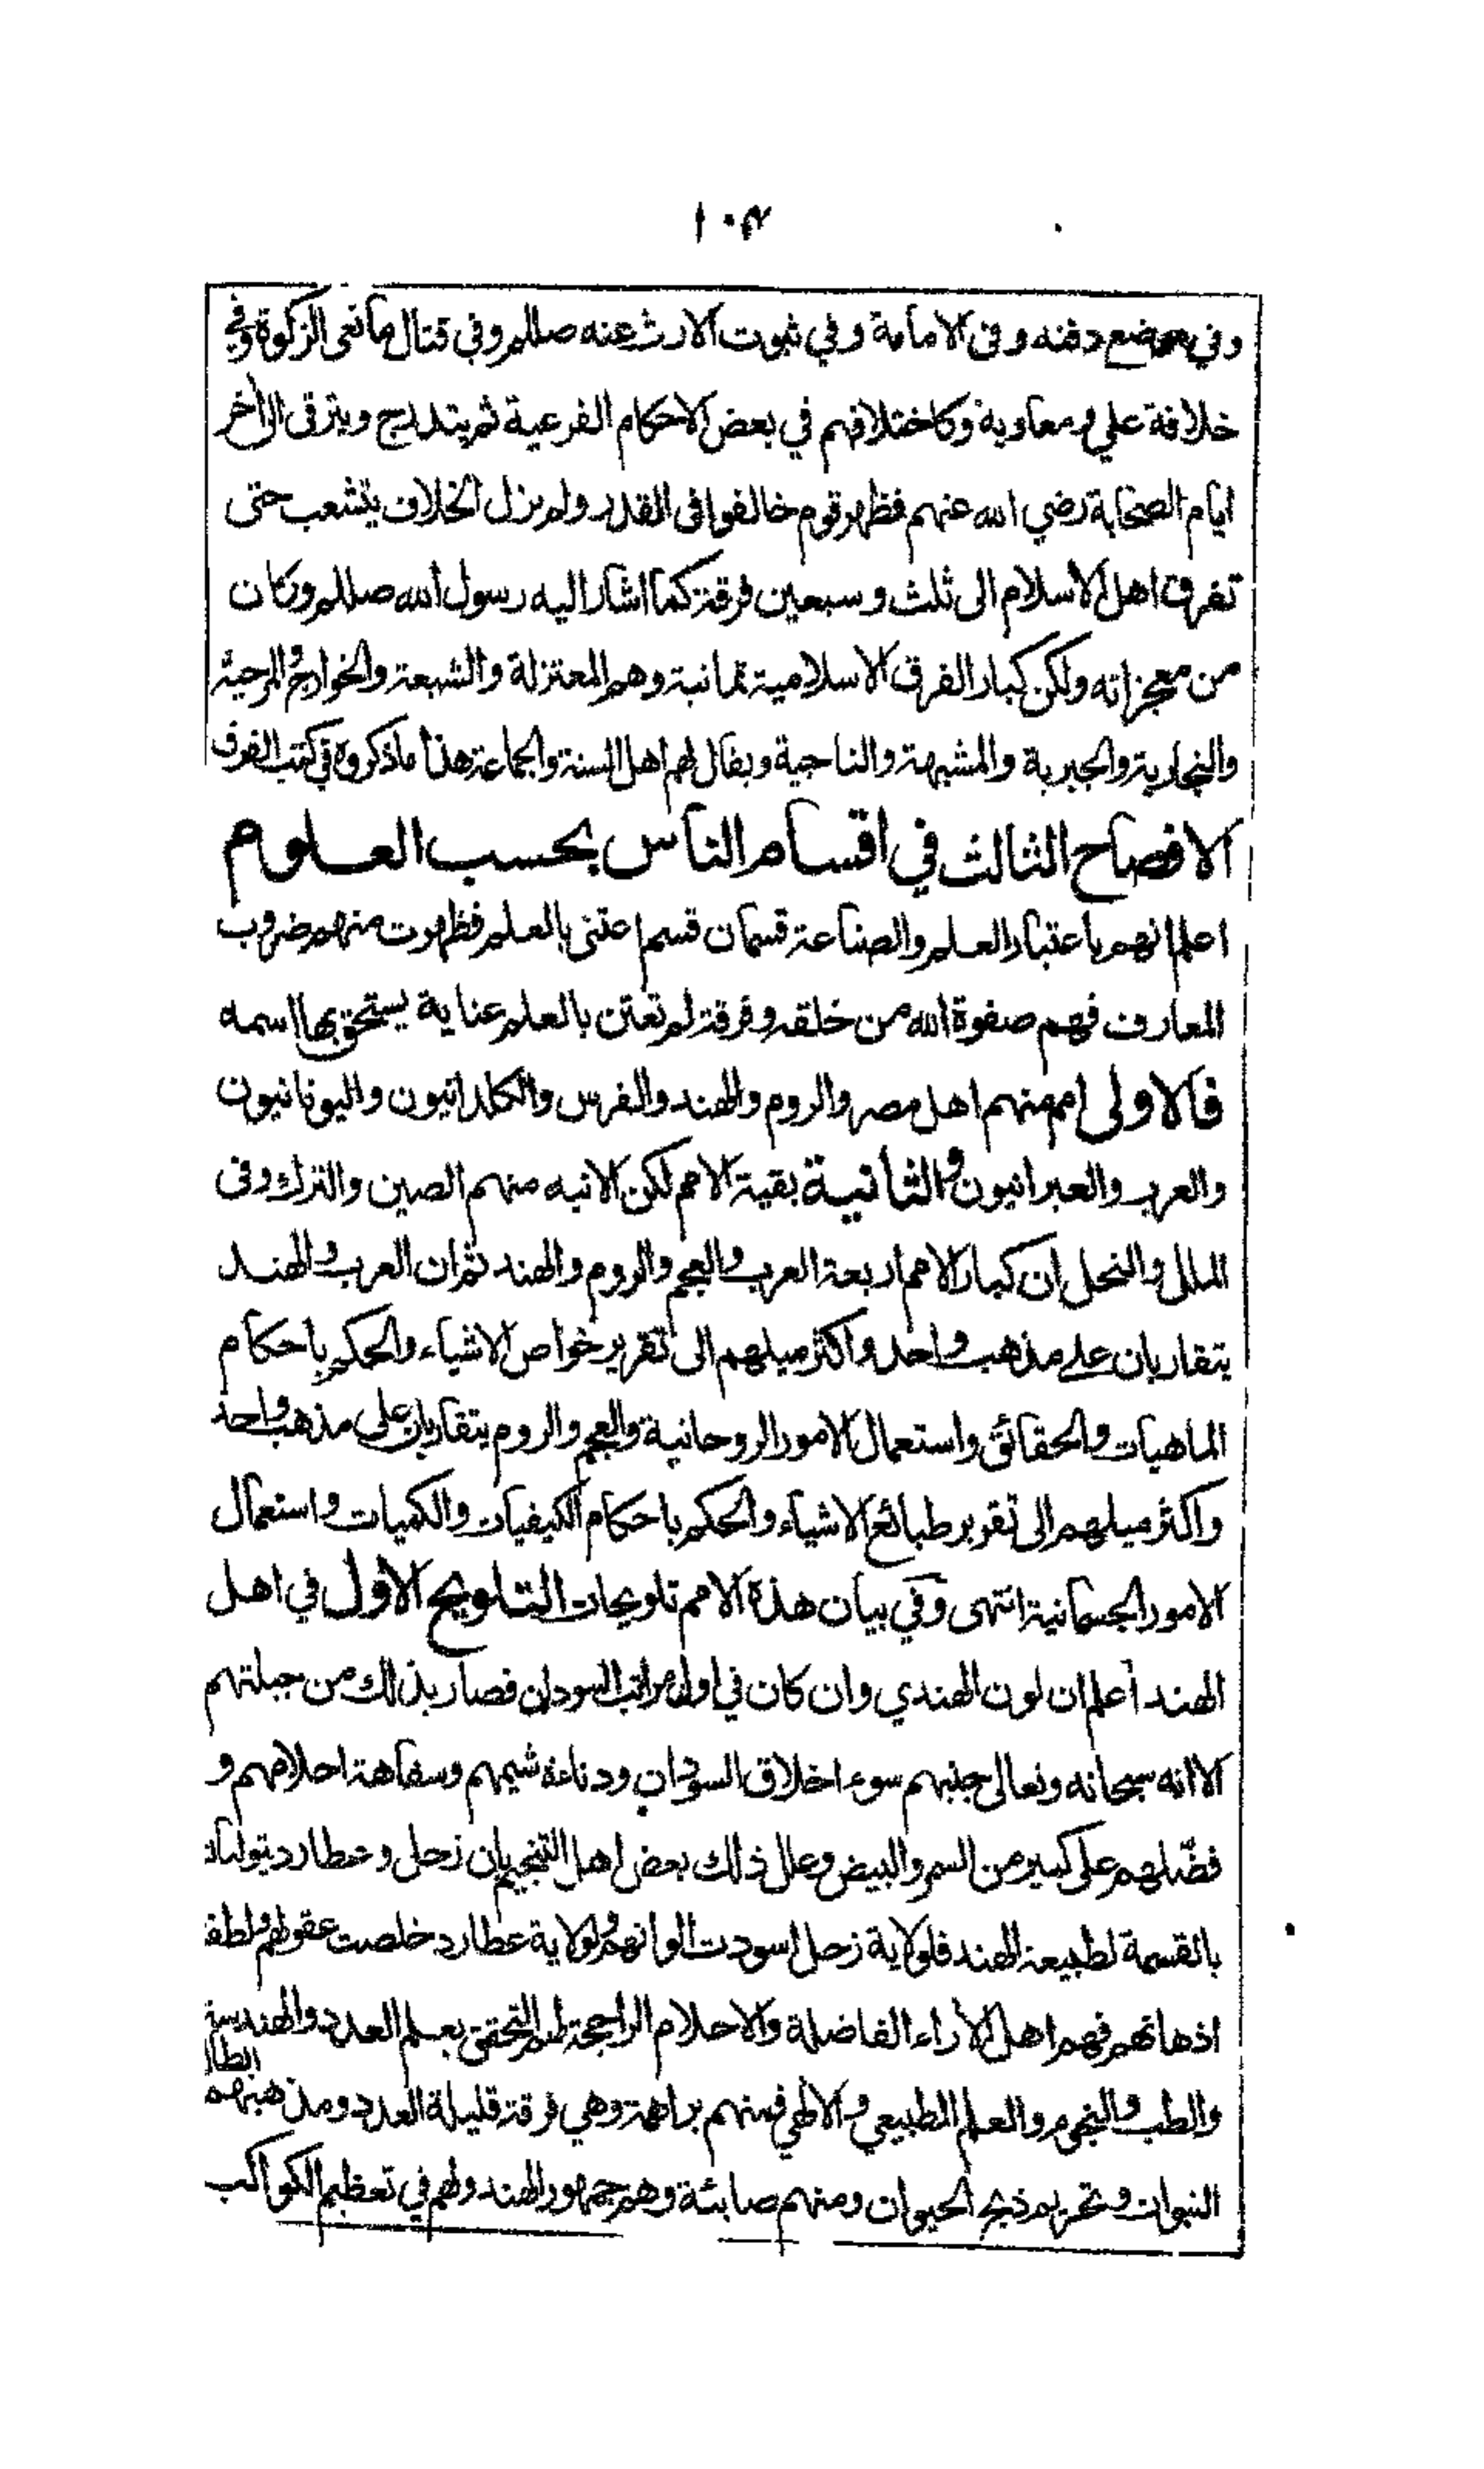 ١٠٣
وفي موضع دفنه وفي الامامة وفي ثبوت الارث عنه صللم وفي قتال مانعى الزكوة وفي
خلافة علي ومعاوية وكاختلافهم في بعض الاحكام الفرعية ثم يتدرج ويترقى الى اخر
ايام الصحابة رضي الله عنهم فظهر قوم خالفوا فى القدر ولم يزل الخلاف يتشعب حتى
تفرق اهل الاسلام الى ثلث وسبعين فرقة كما اشار اليه رسول الله صللم وكان
من معجزاته ولكن كبار الفرق الاسلامية ثمانية وهم المعتزلة والشيعة والخوارج والمرجية
والنجارية والجبرية والمشبهة والناجية ويقال لهم اهل السنة والجماعة هذا ما ذكروه في كتب الفرق
الافصاح الثالث في اقسام الناس بحسب العلوم
اعلم انهم باعتبار العلم والصناعة قسمان قسم اعتنى بالعلم فظهرت منهم ضروب
المعارف فهم صفوة الله من خلقه وفرقة لم تعتن بالعلم عناية يستحق بها اسمه
فالاولى امم منهم اهل مصر والروم والهند والفرس والكلدانيون واليونانيون
والعرب والعبرانيون والثانية بقية الامم لكن الانبه منهم الصين والترك وفى
الملل والنحل ان كبار الامم اربعة العرب والعجم والروم والهند ثم ان العرب والهند
يتقاربان على مذهب واحد واكثر ميلهم الى تقرير خواص الاشياء والحكم باحكام
الماهيات والحقائق واستعمال الامور الروحانية والعجم والروم يتقاربان على مذهب واحد
واكثر ميلهم الى تقرير طبائع الاشياء والحكم باحكام الكيفيات والكميات واستعمال
الامور الجسمانية انتهى وفي بيان هذه الامم تلويحات التلويح الاول في اهل
الهند اعلم ان لون الهندي وان كان في اول مراتب السودان فصار بذلك من جبلتهم
الا انه سبحانه وتعالى جنبهم سوء اخلاق السودان ودناءة شيمهم وسفاهة احلامهم و
فضّلهم على كثير من السمر والبيض وعلل ذلك بعض اهل التنجيم بان زحل وعطارد يتوليان
بالقسمة لطبيعة الهند فلولاية زحل اسودت الوانهم ولولاية عطارد خلصت عقولهم ولطف
اذهانهم فهم اهل الاراء الفاضلة والاحلام الراجحة لهم التحقق بعلم العدد والهندسة
والطب والنجوم والعلم الطبيعي والالهي فمنهم براهمة وهي فرقة قليلة العدد ومذهبهم ابطال
النبوات وتحريم ذبح الحيوان ومنهم صابئة وهم جمهور الهند ولهم في تعظيم الكواكب